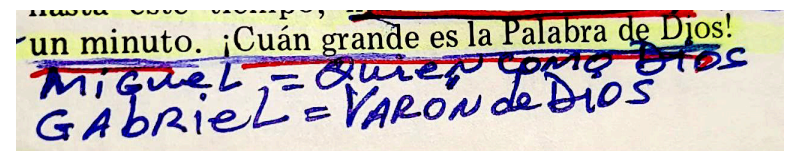 hasta este tiempo,
un minuto. ¡Cuán grande es la Palabra de Dios!
MiGueL = Quien como DIOS
GAbRieL = VARÓN de DIOS